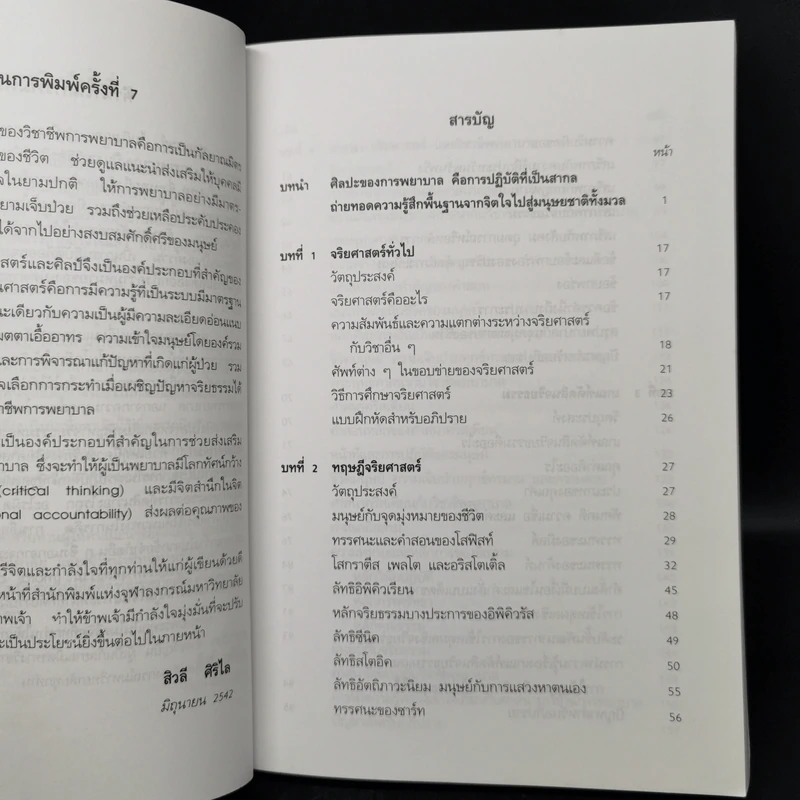 นการพิมพ์ครั้งที่ 7
ของวิชาชีพการพยาบาลคือการเป็นกัลยาณมิตร
ของชีวิต ช่วยดูแลแนะนำส่งเสริมให้บุคคลมี
จในยามปกติ ให้การพยาบาลอย่างมีมาตร-
ยามเจ็บป่วย รวมถึงช่วยเหลือประคับประคอง
ได้จากไปอย่างสงบสมศักดิ์ศรีของมนุษย์
สตร์และศิลป์จึงเป็นองค์ประกอบที่สำคัญของ
นศาสตร์คือการมีความรู้ที่เป็นระบบมีมาตรฐาน
นะเดียวกับความเป็นผู้มีความละเอียดอ่อนแนบ
มตตาเอื้ออาทร ความเข้าใจมนุษย์โดยองค์รวม
และการพิจารณาแก้ปัญหาที่เกิดแก่ผู้ป่วย รวม
จเลือกการกระทำเมื่อเผชิญปัญหาจริยธรรมได้
าชีพการพยาบาล
เป็นองค์ประกอบที่สำคัญในการช่วยส่งเสริม
าบาล ซึ่งจะทำให้ผู้เป็นพยาบาลมีโลกทัศน์กว้าง
(critical thinking) และมีจิตสำนึกในจิต
onal accountability) ส่งผลต่อคุณภาพของ
รีจิตและกำลังใจที่ทุกท่านให้แก่ผู้เขียนด้วยดี
หน้าที่สำนักพิมพ์แห่งจุฬาลงกรณ์มหาวิทยาลัย
าพเจ้า ทำให้ข้าพเจ้ามีกำลังใจมุ่งมั่นที่จะปรับ
ะเป็นประโยชน์ยิ่งขึ้นต่อไปในภายหน้า
สิวลี ศิริไล
มิถุนายน 2542
สารบัญ
หน้า
บทนำ ศิลปะของการพยาบาล คือการปฏิบัติที่เป็นสากล
ถ่ายทอดความรู้สึกพื้นฐานจากจิตใจไปสู่มนุษยชาติทั้งมวล 1
บทที่ 1 จริยศาสตร์ทั่วไป 17
วัตถุประสงค์ 17
จริยศาสตร์คืออะไร 17
ความสัมพันธ์และความแตกต่างระหว่างจริยศาสตร์
กับวิชาอื่น ๆ 18
ศัพท์ต่าง ๆ ในขอบข่ายของจริยศาสตร์ 21
วิธีการศึกษาจริยศาสตร์ 23
แบบฝึกหัดสำหรับอภิปราย 26
บทที่ 2 ทฤษฎีจริยศาสตร์ 27
วัตถุประสงค์ 27
มนุษย์กับจุดมุ่งหมายของชีวิต 28
ทรรศนะและคำสอนของโสฟิสท์ 29
โสกราตีส เพลโต และอริสโตเติ้ล 32
ลัทธิอิพิคิวเรียน 45
หลักจริยธรรมบางประการของอิพิคิวรัส 48
ลัทธิซีนิค 49
ลัทธิสโตอิค 50
ลัทธิอัตถิภาวะนิยม มนุษย์กับการแสวงหาตนเอง 55
ทรรศนะของซาร์ท 56